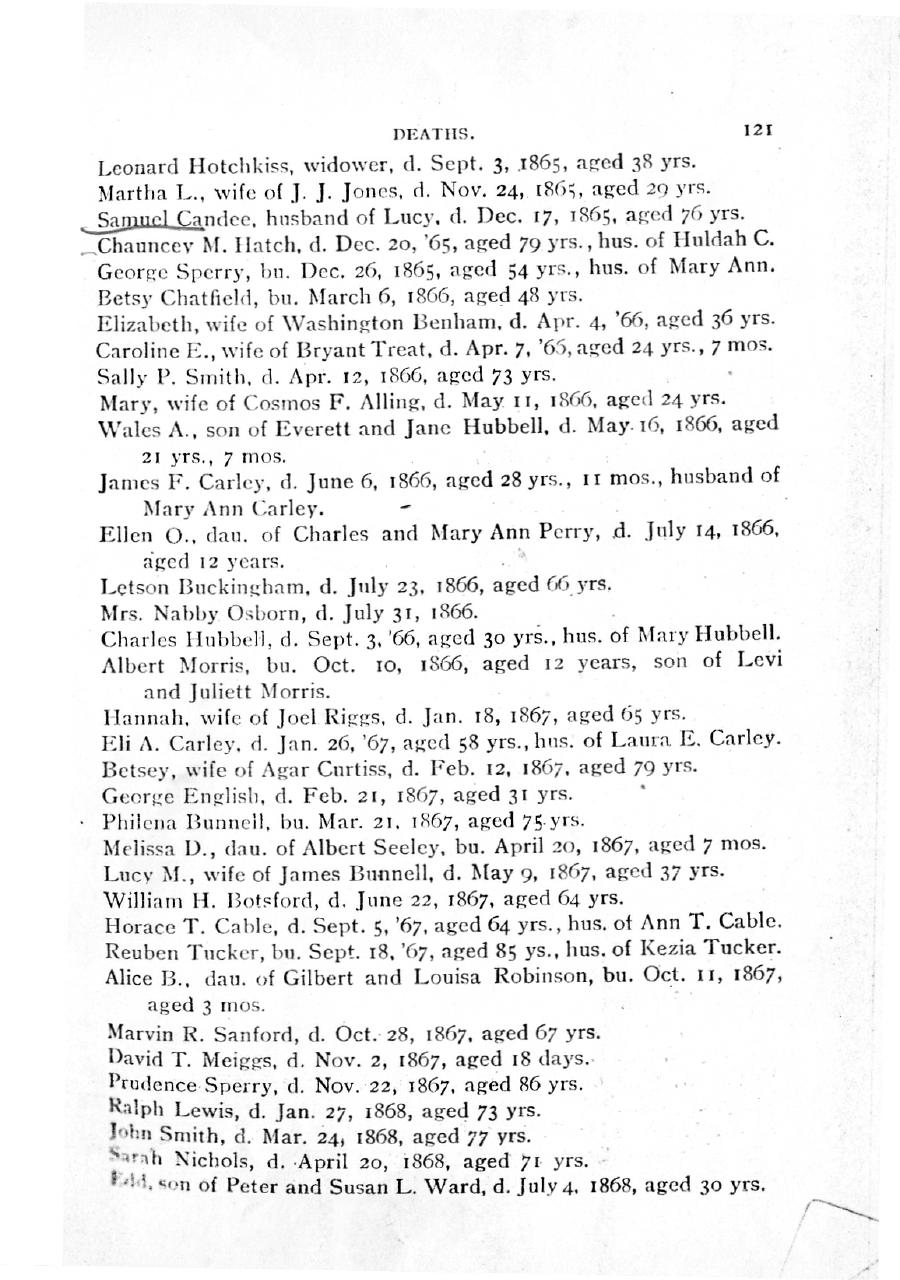 DEATHS. 121
Leonard Hotchkiss, widower, d. Sept. 3, 1865, aged 38 yrs.
Martha L., wife of J. J. Jones, d. Nov. 24, 1865, aged 29 yrs.
Samuel Candee, husband of Lucy, d. Dec. 17, 1865, aged 76 yrs.
Chauncey M. Hatch, d. Dec. 20, '65, aged 79 yrs., hus. of Huldah C.
George Sperry, bu. Dec. 26, 1865, aged 54 yrs., hus. of Mary Ann.
Betsy Chatfield, bu. March 6, 1866, aged 48 yrs.
Elizabeth, wife of Washington Benham, d. Apr. 4, '66, aged 36 yrs.
Caroline E., wife of Bryant Treat, d. Apr. 7, '66, aged 24 yrs., 7 mos.
Sally P. Smith, d. Apr. 12, 1866, aged 73 yrs.
Mary, wife of Cosmos F. Alling, d. May 11, 1866, aged 24 yrs.
Wales A., son of Everett and Jane Hubbell, d. May 16, 1866, aged
21 yrs., 7 mos.
James F. Carley, d. June 6, 1866, aged 28 yrs., 11 mos., husband of
Mary Ann Carley.
Ellen O., dau. of Charles and Mary Ann Perry, d. July 14, 1866,
aged 12 years.
Letson Buckingham, d. July 23, 1866, aged 66 yrs.
Mrs. Nabby Osborn, d. July 31, 1866.
Charles Hubbell, d. Sept. 3, '66, aged 30 yrs., hus. of Mary Hubbell.
Albert Morris, bu. Oct. 10, 1866, aged 12 years, son of Levi
and Juliett Morris.
Hannah, wife of Joel Riggs, d. Jan. 18, 1867, aged 65 yrs.
Eli A. Carley, d. Jan. 26, '67, aged 58 yrs., hus. of Laura E. Carley.
Betsey, wife of Agar Curtiss, d. Feb. 12, 1867, aged 79 yrs.
George English, d. Feb. 21, 1867, aged 31 yrs.
Philena Bunnell, bu. Mar. 21, 1867, aged 75 yrs.
Melissa D., dau. of Albert Seeley, bu. April 20, 1867, aged 7 mos.
Lucy M., wife of James Bunnell, d. May 9, 1867, aged 37 yrs.
William H. Botsford, d. June 22, 1867, aged 64 yrs.
Horace T. Cable, d. Sept. 5, '67, aged 64 yrs., hus. of Ann T. Cable.
Reuben Tucker, bu. Sept. 18, '67, aged 85 ys., hus. of Kezia Tucker.
Alice B., dau. of Gilbert and Louisa Robinson, bu. Oct. 11, 1867,
aged 3 mos.
Marvin R. Sanford, d. Oct. 28, 1867, aged 67 yrs.
David T. Meiggs, d. Nov. 2, 1867, aged 18 days.
Prudence Sperry, d. Nov. 22, 1867, aged 86 yrs.
Ralph Lewis, d. Jan. 27, 1868, aged 73 yrs.
John Smith, d. Mar. 24, 1868, aged 77 yrs.
Sarah Nichols, d. April 20, 1868, aged 71 yrs.
son of Peter and Susan L. Ward, d. July 4, 1868, aged 30 yrs.